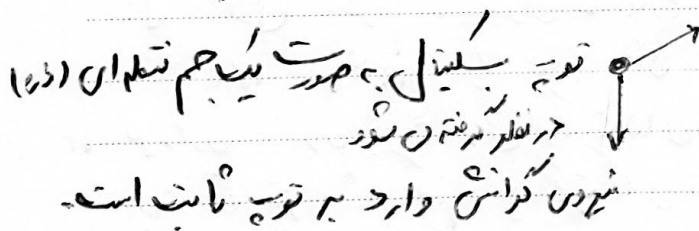 توپ بسکتبال به صورت یک جسم نقطه‌ای (ذره)
در نظر گرفته می شود
نیروی گرانشی وارد بر توپ ثابت است.